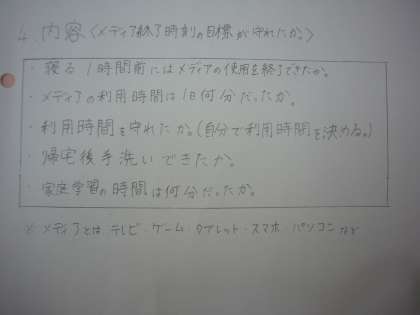 4.内容〈メディア終了時刻の目標が守れたか。〉
・寝る1時間前にはメディアの使用を終了できたか。
・メディアの利用時間は1日何分だったか。
・利用時間を守れたか。(自分で利用時間を決める。)
・帰宅後手洗いできたか。
・家庭学習の時間は何分だったか。
※メディアとは テレビ・ゲーム・タブレット・スマホ・パソコン など